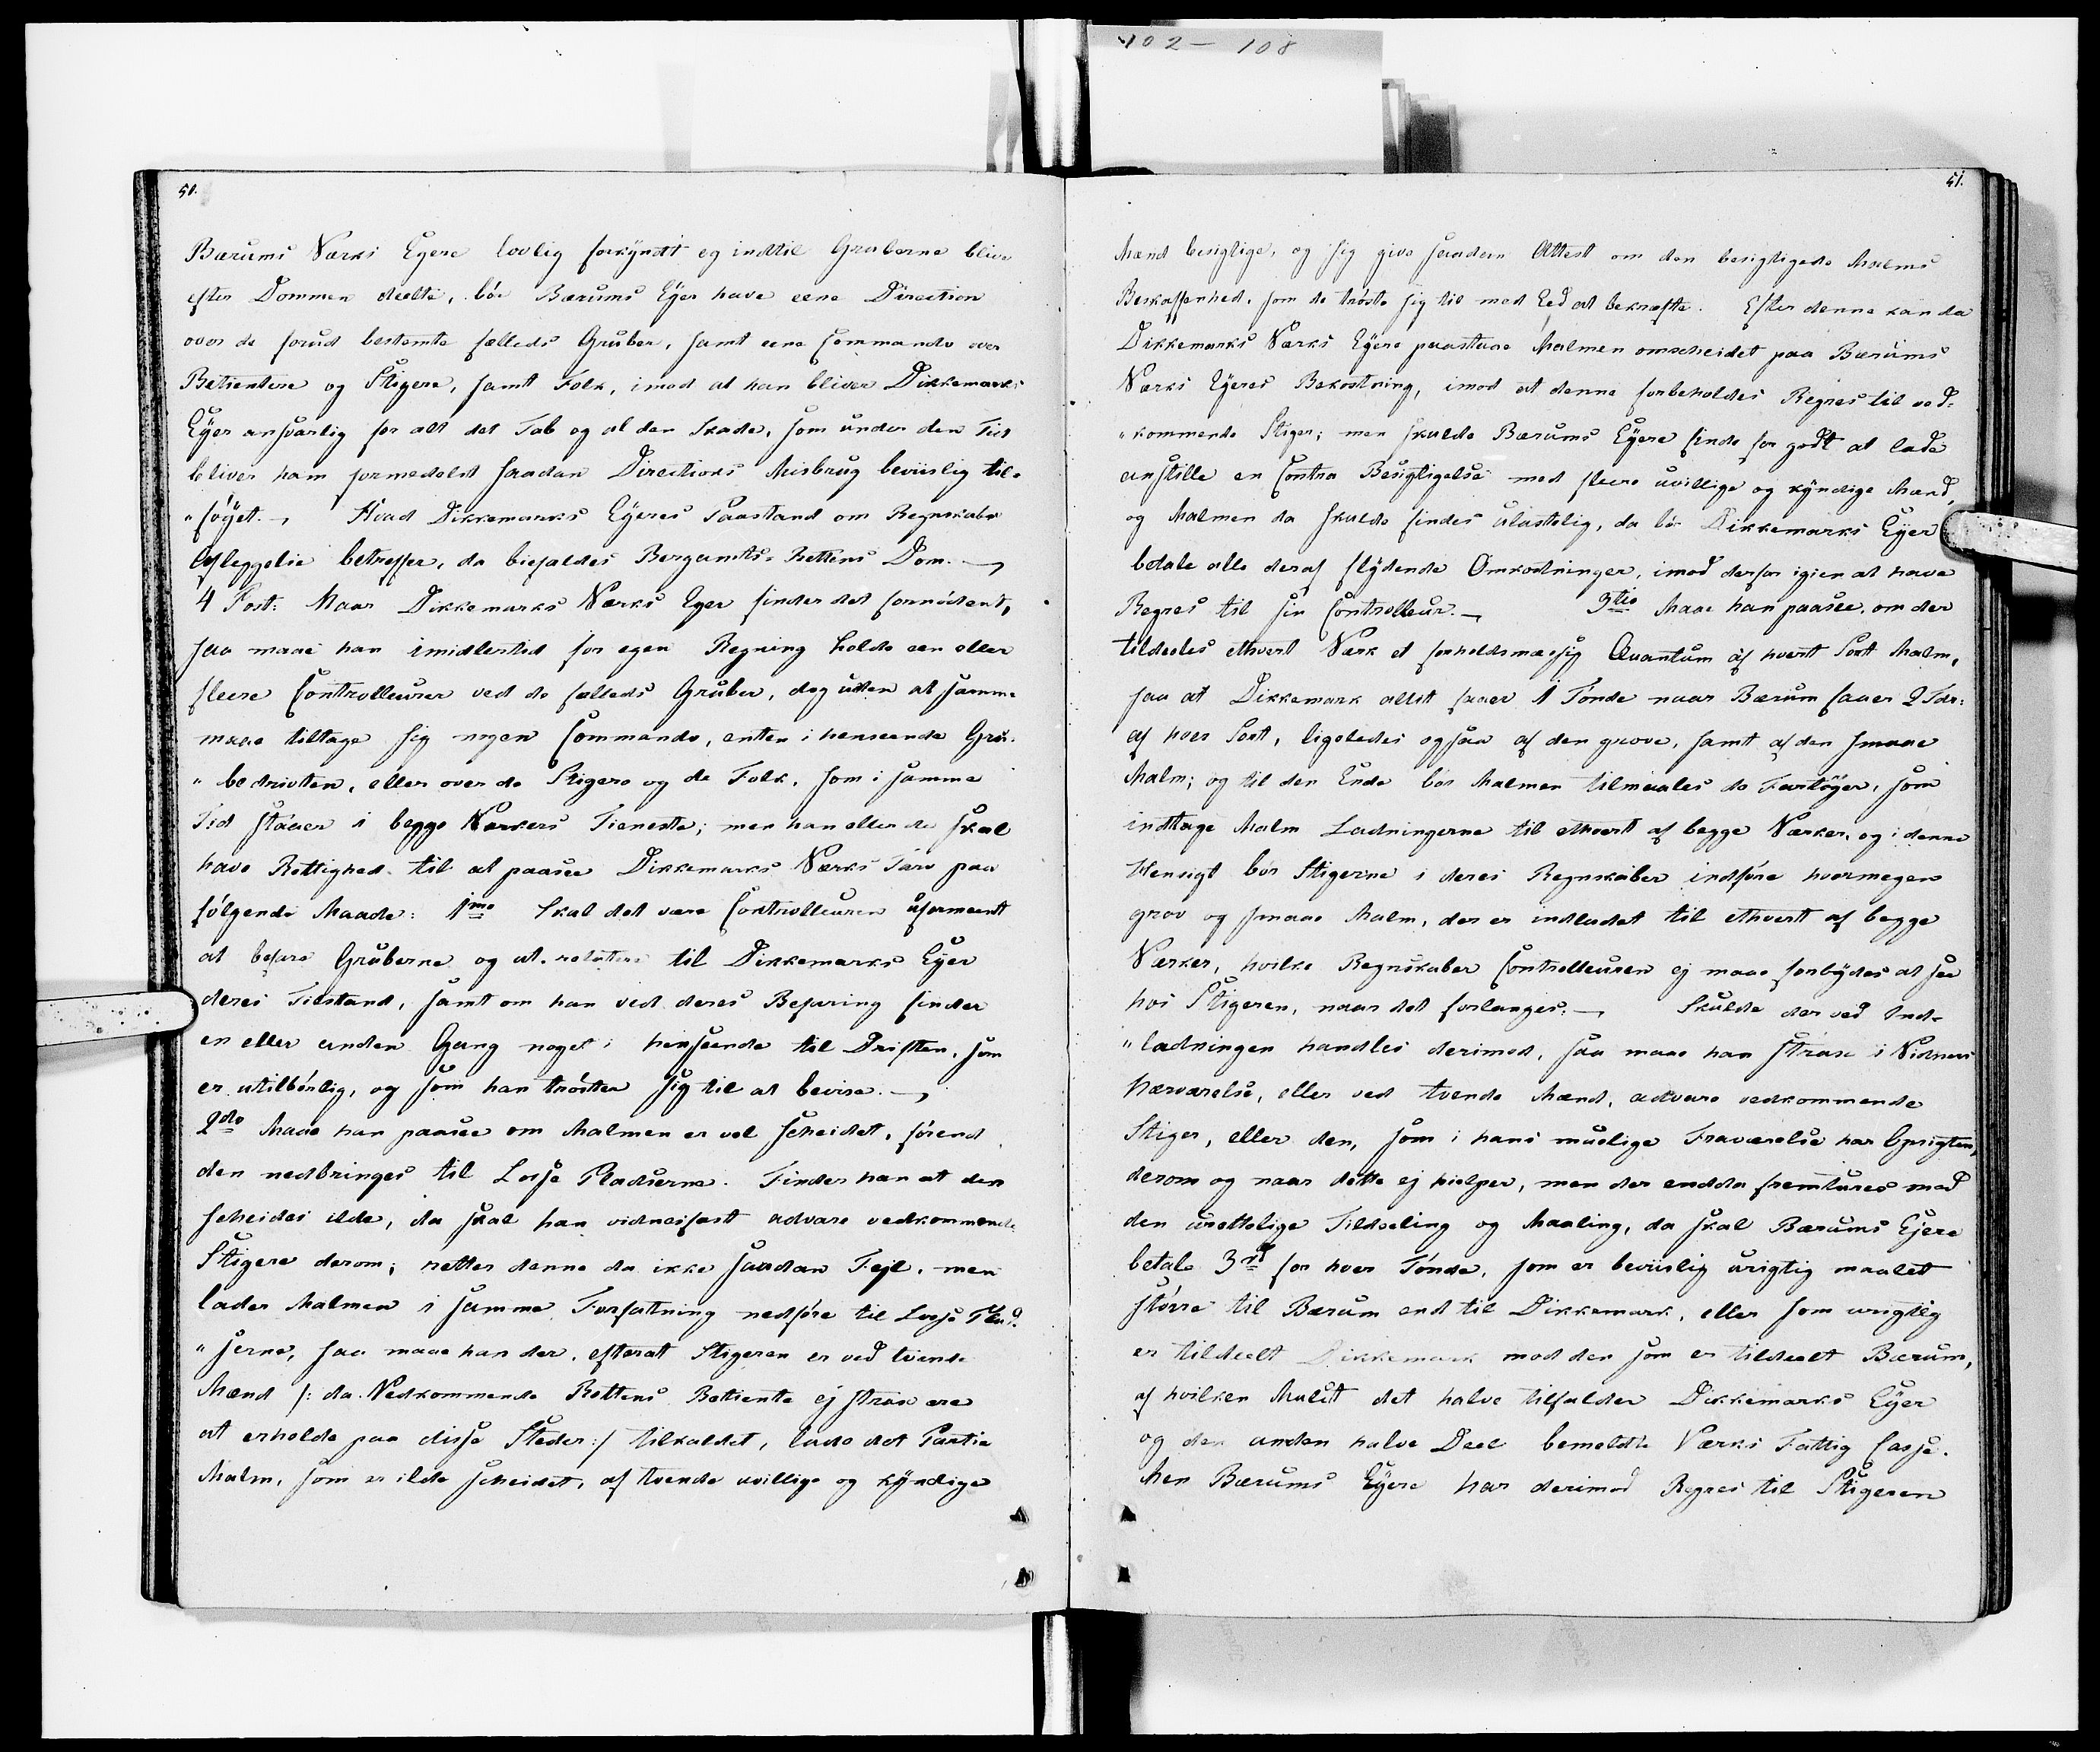 102 - 108
50.
Bærums Værks Eyere lovlig forkyndt og indtil Gruberne blive
efter Dommen deelte, bör Bærums Eyer have eene Direction
over de forud bestemte fælleds Gruber, samt eene Commando over
Betientere og Stigere, samt Folk, imod at han bliver Dikkemarks
Eyer ansvarlig for alt det Tab og al den Skade, som under den Tid
bliver ham formedelst saadan Directions Misbrug beviislig til-
"föyet. — Hvad Dikkemarks Eyeres Paastand om Regnskabs
Aflæggelse betreffer, da biefaldes Bergamts-Rettens Dom. —
4 Post: Naar Dikkemarks Værks Eyer finder det fornödent,
saa maae han imidlertid for egen Regning holde een eller
fleere Controlleurer ved de fælleds Gruber, dog uden at samme
maae tiltage sig nogen Commando, enten i henseende Gru-
"bedrivten, eller over de Stigere og de Folk, som i samme
Tid staaer i begge Værkers Tieneste; men han eller de skal
have Rettighed til at paasee Dikkemarks Værks Tarv paa
fölgende Maade: 1mo Skal det være Controlleuren uformeent
at befare Gruberne og at referere til Dikkemarks Eyer
deres Tilstand, samt om han ved deres Befaring finder
en eller anden Gang noget i henseende til Driften, som
er utilbörlig, og som han tröster sig til at bevise. —
2do Maae han paasee om Malmen er vel scheidet, förend
den nedbringes til Losse Pladserne. Finder han at den
scheides ilde, da skal han vidnesfast advare vedkommende
Stigere derom; retter denne da ikke saadan Fejl, men
lader Malmen i samme Forfatning nedföre til Losse Plad-
"serne, saa maae han der, efterat Stigeren er ved tvende
Mænd /: da Vedkommende Rettens Betiente ej strax ere
at erholde paa disse Steder :/ tilkaldet, lade det Partie
Malm, som er ilde scheidet, af tvende uvillige og kyndige
51.
Mænd besigtige, og sig give saadan Attest om den besigtigede Malms
Beskaffenhed, som de tröste sig til med Eed at bekræfte. Efter denne kan da
Dikkemarks Værks Eyere paastaae Malmen omscheidet paa Bærums
Værks Eyeres Bekostning, imod at denne forbeholdes Regres til ved-
"kommende Stiger; men skulde Bærums Eyere finde for godt at lade
anstille en Contra Besigtigelse med fleere uvillige og kyndige Mænd,
og Malmen da skulde findes ulastelig, da bör Dikkemarks Eyer
betale alle deraf flydende Omkostninger, imod derfor igien at have
Regres til sin Controlleur. — 3tio Maae han paasee, om der
tildeeles ethvert Værk et forholdsmæssig Quantum af hvert Sort Malm,
saa at Dikkemark altid faaer 1 Tönde naar Bærum faaer 2 Tdr:
af hver Sort, ligeledes ogsaa af den grove, samt af den smaae
Malm; og til den Ende bör Malmen tilmaales de Fartöyer, som
indtage Malm Ladningerne til ethvert af begge Værker, og i denne
Hensigt bör Stigerne i deres Regnskaber indföre hvormegen
grov og smaae Malm, der er indladet til ethvert af begge
Værker, hvilke Regnskaber Controlleuren ej maae forbydes at see
hos Stigeren, naar det forlanges. — Skulde der ved Ind-
"ladningen handles derimod, saa maae han strax i Vidners
Nærværelse, eller ved tvende Mænd, advare vedkommende
Stiger, eller den, som i hans muelige Fraværelse har Opsigten,
derom og naar dette ej hielper, men der endda fremtures med
den urettelige Tildeeling og Maaling, da skal Bærums Ejere
betale 3 rd for hver Tönde, som er beviislig urigtig maalet
större til Bærum end til Dikkemark, eller som urigtig
er tildeelt Dikkemark mod den som er tildeelt Bærum,
af hvilken Mulct det halve tilfalder Dikkemarks Eyer
og den anden halve Deel bemeldte Værks Fattig Casse.
Men Bærums Eyere har derimod Regres til Stigeren